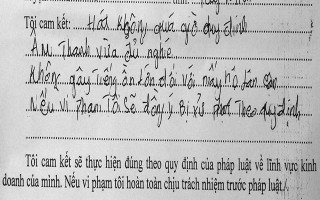 Tôi cam kết: Hát không quá giờ quy định
Âm Thanh vừa đủ nghe
Không gây Tiếng ồn lớn đối với mấy hộ lân cận
Nếu vi phạm Tôi sẽ đồng ý Bị xử phạt Theo quy định
Tôi cam kết sẽ thực hiện đúng theo quy định của pháp luật về lĩnh vực kinh
doanh của mình. Nếu vi phạm tôi hoàn toàn chịu trách nhiệm trước pháp luật./.